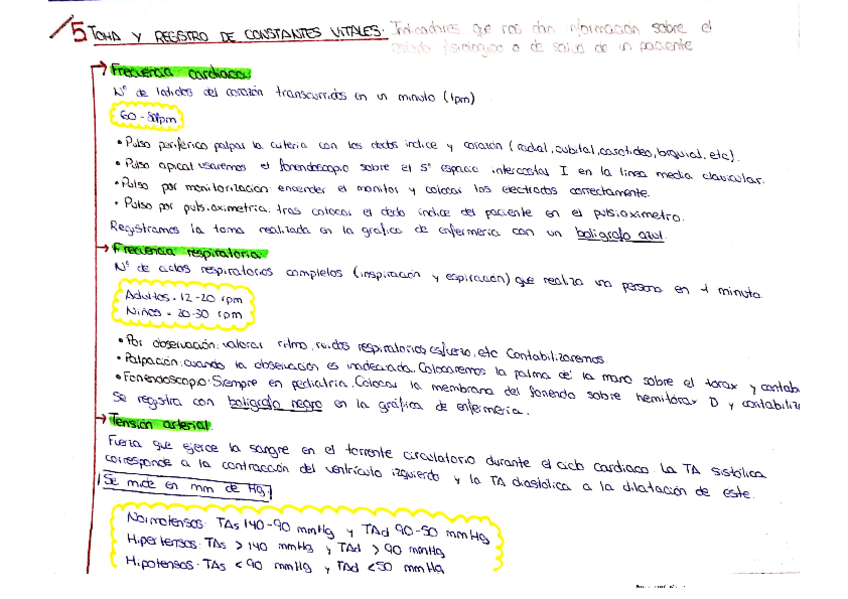 5 TOMA Y REGISTRO DE CONSTANTES VITALES. Indicadores que nos dan información sobre el
estado fisiológico o de salud de un paciente
Frecuencia cardiaca
Nº de latidos del corazón transcurridos en un minuto (lpm)
60-80lpm
• Pulso periférico palpar la arteria con los dedos índice y corazón (radial, cubital, carotídeo, braquial, etc).
• Pulso apical usaremos el fonendoscopio sobre el 5º espacio intercostal I en la línea media clavicular.
• Pulso por monitorización encender el monitor y colocar los electrodos correctamente.
• Pulso por pulsioximetría: tras colocar el dedo índice del paciente en el pulsioxímetro.
Registramos la toma realizada en la gráfica de enfermería con un bolígrafo azul.
Frecuencia respiratoria.
Nº de ciclos respiratorios completos (inspiración y espiración) que realiza una persona en 1 minuto.
Adultos = 12-20 rpm
Niños = 20-30 rpm
• Por observación: valorar ritmo, ruidos respiratorios, esfuerzo, etc Contabilizaremos
• Palpación: cuando la observación es inadecuada. Colocaremos la palma de la mano sobre el tórax y contab
• Fonendoscopio: Siempre en pediatría. Colocar la membrana del fonendo sobre hemitórax D y contabiliz
Se registra con bolígrafo negro en la gráfica de enfermería.
Tensión arterial.
Fuerza que ejerce la sangre en el torrente circulatorio durante el ciclo cardiaco. La TA sistólica
corresponde a la contracción del ventrículo izquierdo y la TA diastólica a la dilatación de este.
Se mide en mm de Hg.
Normotensos: TAs 140-90 mmHg y TAd 90-50 mmHg
Hipertensos: TAs > 140 mmHg y TAd > 90 mmHg
Hipotensos: TAs < 90 mmHg y TAd < 50 mmHg